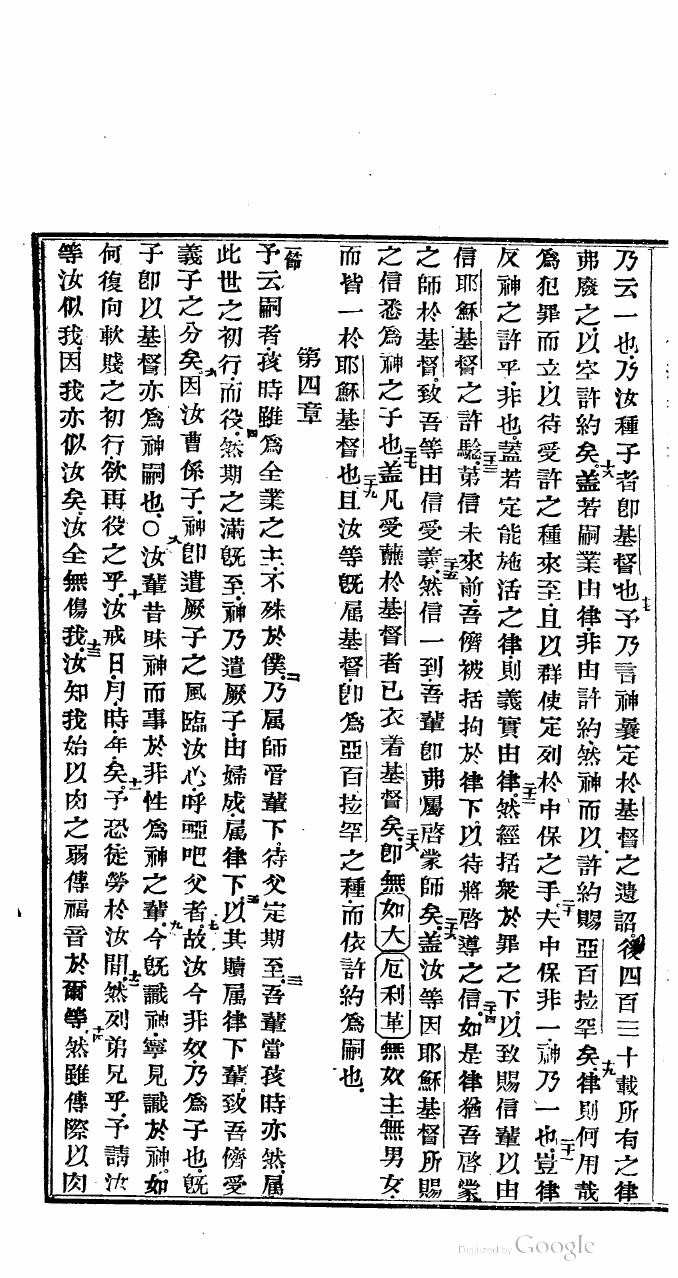 乃云一也乃汝種子者即基督也十七予乃言神曩定於基督之遺詔後四百三十載所有之律
弗廢之以空許約矣十八蓋若嗣業由律非由許約然神而以許約賜亞百拉罕矣十九律則何用哉
為犯罪而立以待受許之種來至且以群使定列於中保之手二十夫中保非一神乃一也二十一豈律
反神之許乎非也蓋若定能施活之律則義實由律二十二然經括衆於罪之下以致賜信輩以由
信耶穌基督之許驗二十三第信未來前吾儕被括拘於律下以待將啓導之信二十四如是律猶吾啓蒙
之師於基督致吾等由信受義二十五然信一到吾輩即弗屬啓蒙師矣二十六蓋汝等因耶穌基督所賜
之信悉為神之子也二十七蓋凡受蘸於基督者已衣着基督矣二十八即無如大厄利革無奴主無男女
而皆一於耶穌基督也二十九且汝等既属基督即為亞百拉罕之種而依許約為嗣也
第四章
一節予云嗣者孩時雖為全業之主不殊於僕二乃属師管輩下待父定期至三吾輩當孩時亦然属
此世之初行而役四然期之滿既至神乃遣厥子由婦成属律下五以其贖属律下輩致吾儕受
義子之分矣六因汝曹係子神即遣厥子之風臨汝心呼啞吧父者七故汝今非奴乃為子也既
子即以基督亦為神嗣也〇八汝輩昔昧神而事於非性為神之輩九今既識神寧見識於神如
何復向軟賤之初行欲再役之乎十汝戒日月時年矣十一予恐徒勞於汝間十二然列弟兄乎予請汝
等汝似我因我亦似汝矣汝全無傷我十三汝知我始以肉之弱傳福音於爾等十四然雖傳際以肉
Digitized by Google